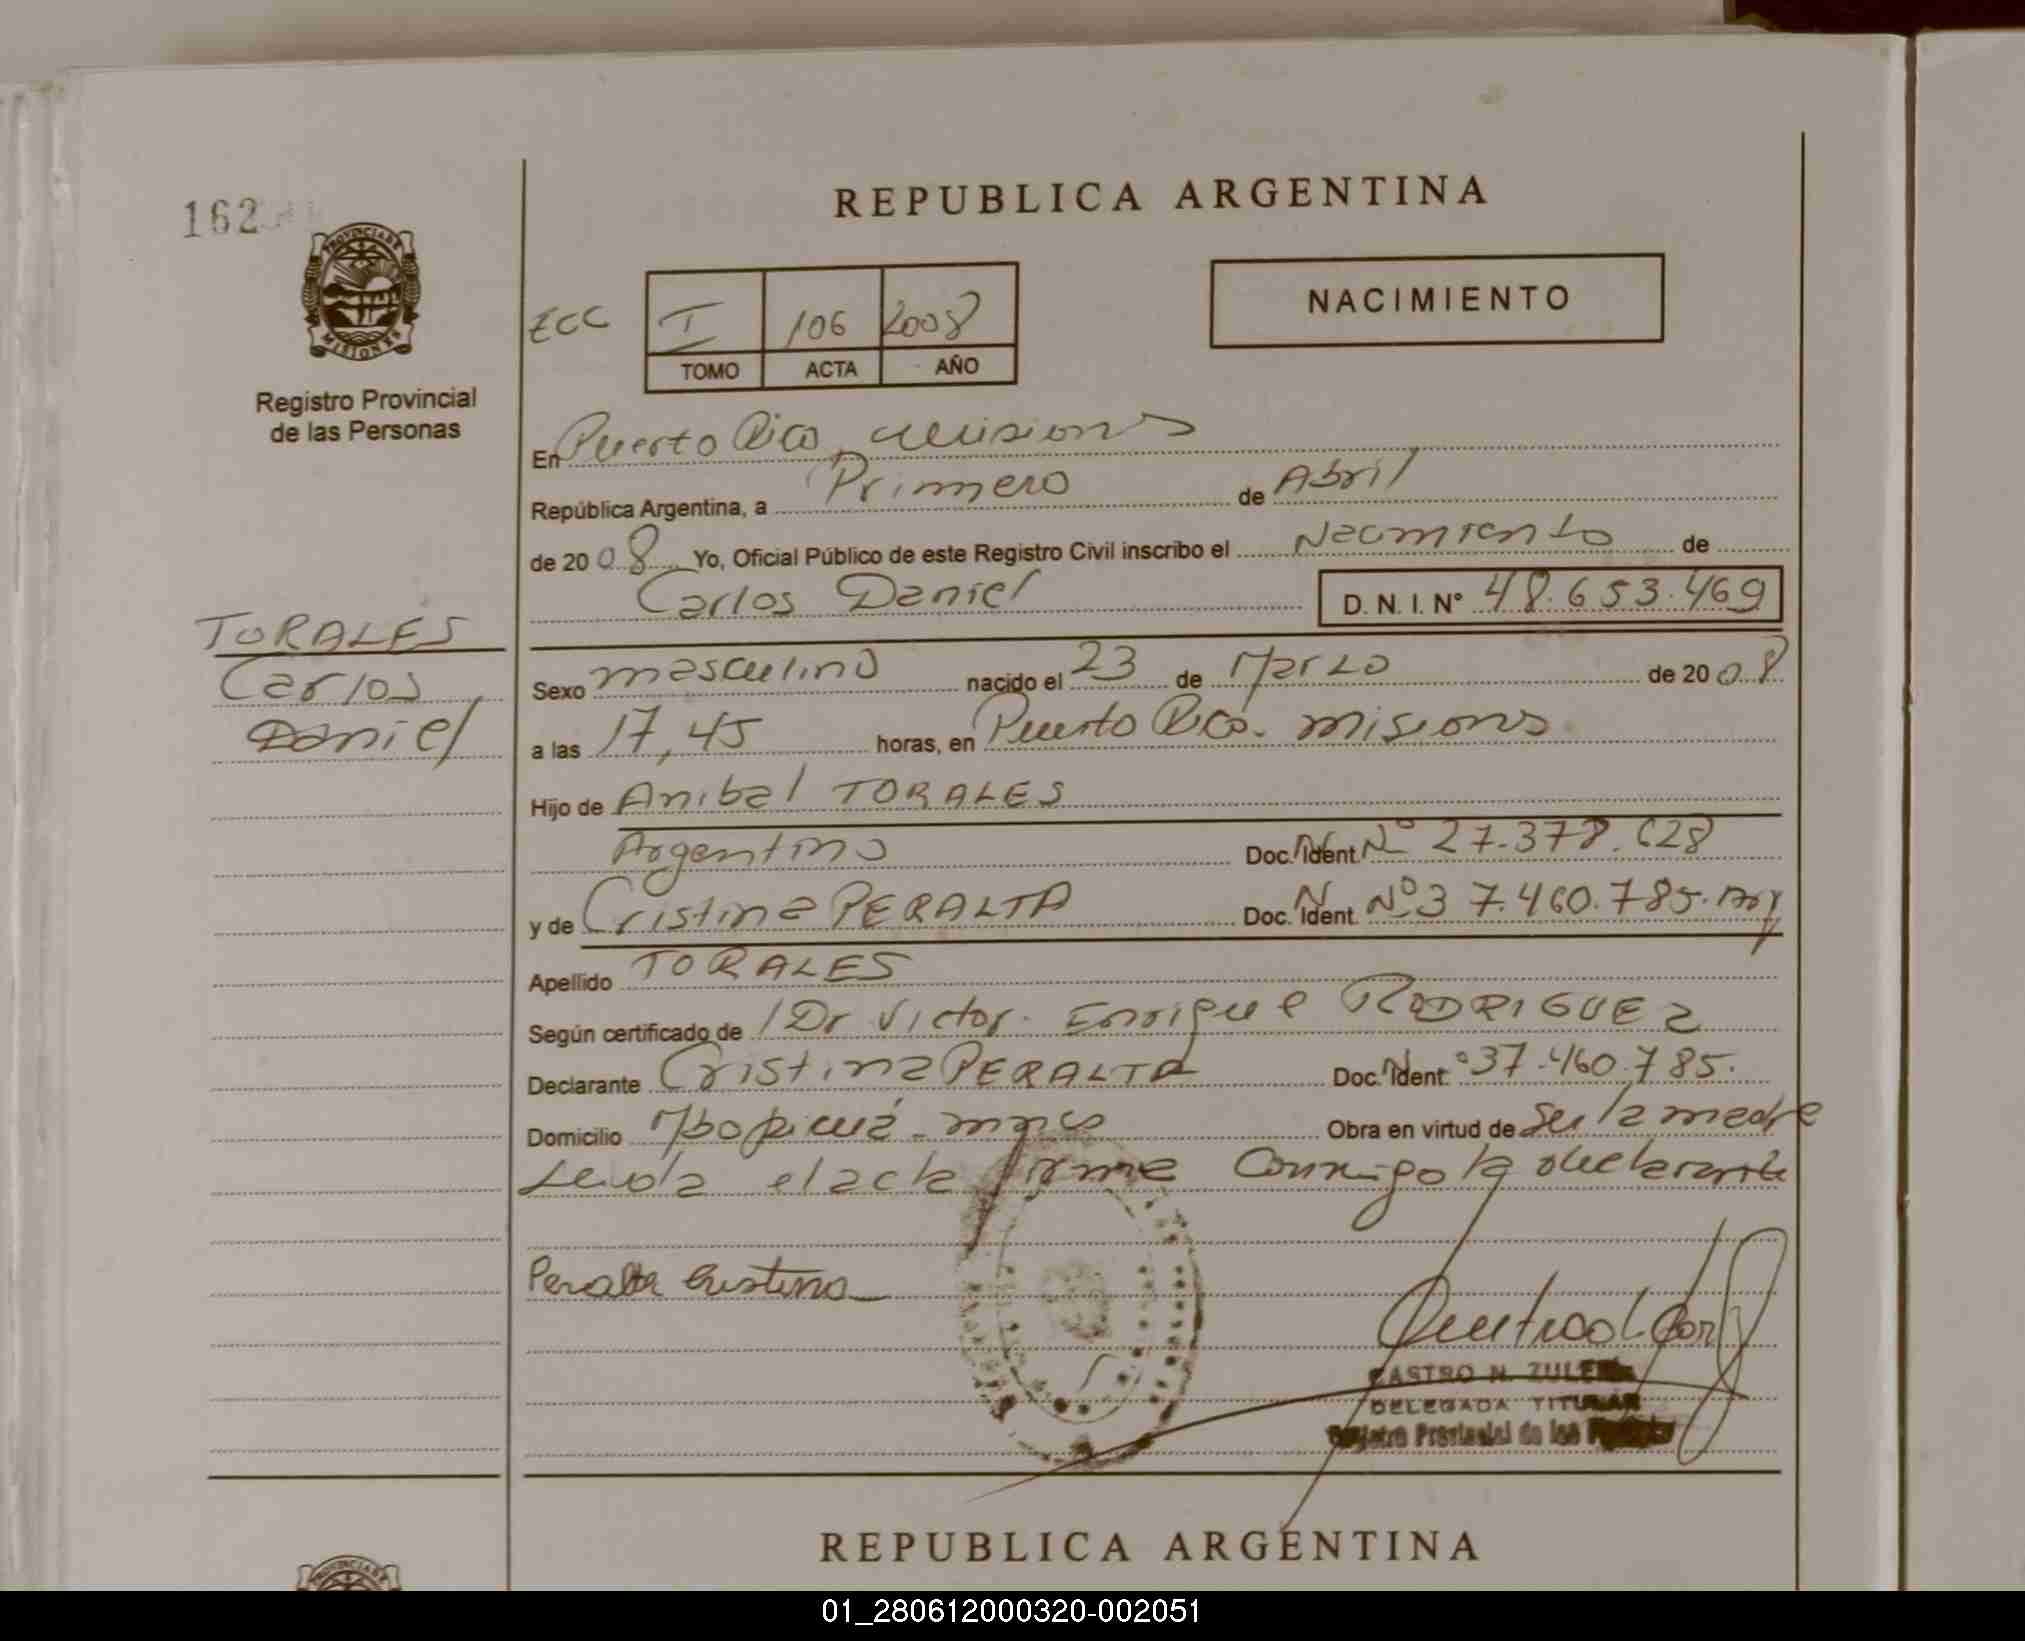 162
REPUBLICA ARGENTINA
PROVINCIA DE MISIONES
NACIMIENTO
ECC I 106 2008
TOMO ACTA AÑO
Registro Provincial
de las Personas
En Puerto Rico, misiones
República Argentina, a Primero de Abril
de 20 08 Yo, Oficial Público de este Registro Civil inscribo el Nacimiento de
Carlos Daniel D. N. I. Nº 48.653.469
TORALES
Carlos
Daniel
Sexo masculino nacido el 23 de Marzo de 20 08
a las 17,45 horas, en Puerto Rico. misiones
Hijo de Anibal TORALES
Argentino Doc. Ident. Nº 27.378.628
y de Cristina PERALTA Doc. Ident. Nº 37.460.785. Arg
Apellido TORALES
Según certificado de Dr Victor Enrique RODRIGUEZ
Declarante Cristina PERALTA Doc. Ident. Nº 37.460.785.
Domicilio Mbopicuá Obra en virtud de Ser la madre
Leida el acta firma Conmigo la declarante
Peralta Cristina
CASTRO N. ZULEMA
DELEGADA TITULAR
Registro Provincial de las Personas
REPUBLICA ARGENTINA
01_280612000320-002051